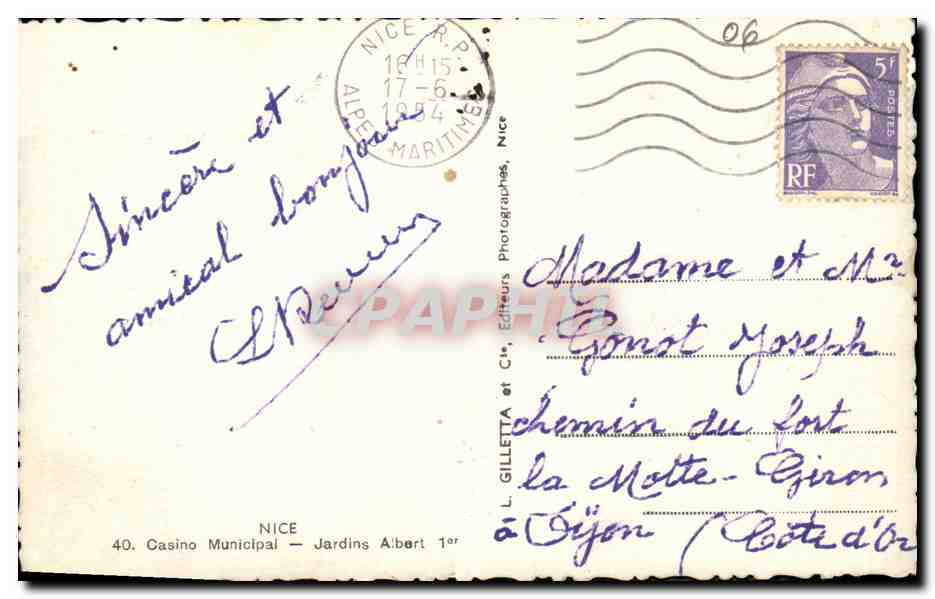 Sincère et
amical bonjour
NICE R.P.
16H15
17-6
1954
ALPES MARITIMES
06
5F
POSTES
RF
Madame et Mr
Gonot Joseph
chemin du fort
la Motte-Giron
à Dijon (Côte d'Or
L. GILLETTA et Cie, Editeurs Photographes, Nice
CPAPHIL
NICE
40. Casino Municipal — Jardins Albert 1er